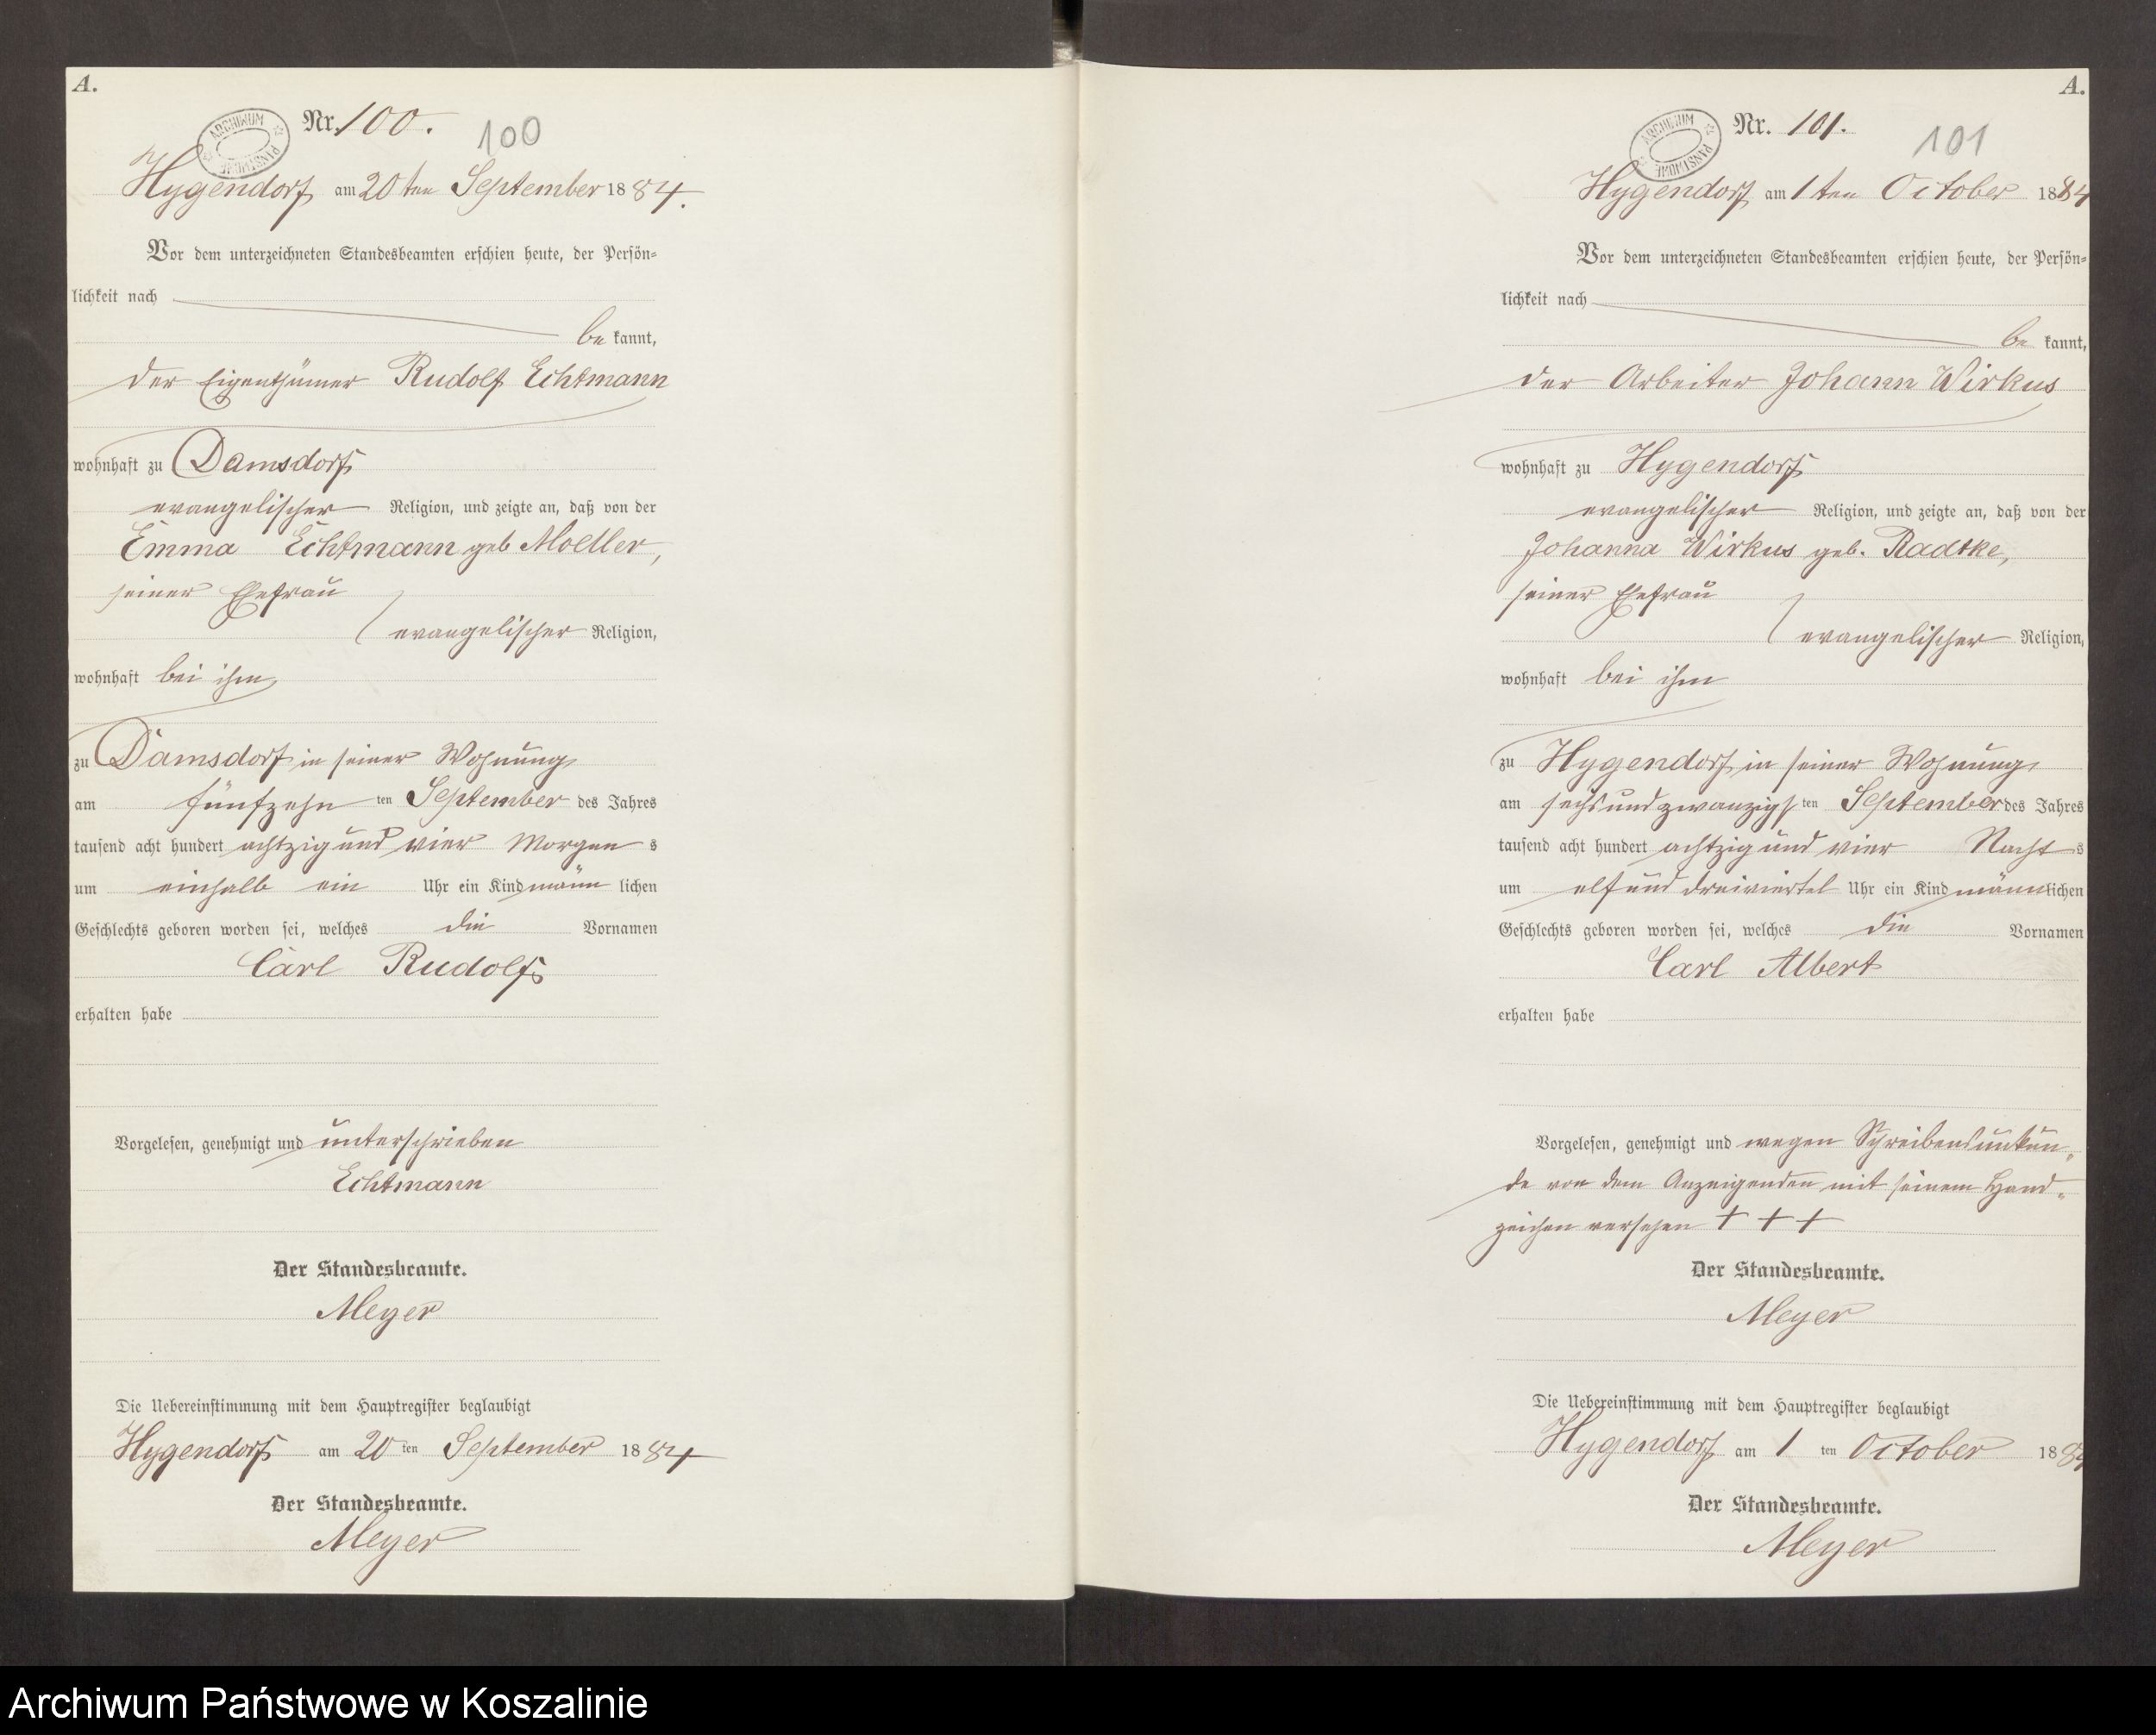 A.
Nr. 100.
100
ARCHIWUM PAŃSTWOWE
Hygendorf am 20ten September 1884.
Vor dem unterzeichneten Standesbeamten erschien heute, der Persön-
lichkeit nach
bekannt,
der Eigenthümer Rudolf Echtmann
wohnhaft zu Damsdorf
evangelischer Religion, und zeigte an, daß von der
Emma Echtmann geb Moeller,
seiner Ehefrau
evangelischer Religion,
wohnhaft bei ihm
zu Damsdorf in seiner Wohnung
am fünfzehn ten September des Jahres
tausend acht hundert achtzig und vier Morgens
um einhalb ein Uhr ein Kind männlichen
Geschlechts geboren worden sei, welches die Vornamen
Carl Rudolf
erhalten habe
Vorgelesen, genehmigt und unterschrieben
Echtmann
Der Standesbeamte.
Meyer
Die Uebereinstimmung mit dem Hauptregister beglaubigt
Hygendorf am 20 ten September 1884
Der Standesbeamte.
Meyer
A.
Nr. 101.
101
ARCHIWUM PAŃSTWOWE
Hygendorf am 1ten October 1884
Vor dem unterzeichneten Standesbeamten erschien heute, der Persön-
lichkeit nach
bekannt,
der Arbeiter Johann Wirkus
wohnhaft zu Hygendorf
evangelischer Religion, und zeigte an, daß von der
Johanna Wirkus geb. Radtke,
seiner Ehefrau
evangelischer Religion,
wohnhaft bei ihm
zu Hygendorf in seiner Wohnung
am sechsundzwanzigsten September des Jahres
tausend acht hundert achtzig und vier Nachts
um elf und dreiviertel Uhr ein Kind männlichen
Geschlechts geboren worden sei, welches die Vornamen
Carl Albert
erhalten habe
Vorgelesen, genehmigt und wegen Schreibensunkun-
de von dem Anzeigenden mit seinem Hand-
zeichen versehen + + +
Der Standesbeamte.
Meyer
Die Uebereinstimmung mit dem Hauptregister beglaubigt
Hygendorf am 1 ten October 1884
Der Standesbeamte.
Meyer
Archiwum Państwowe w Koszalinie